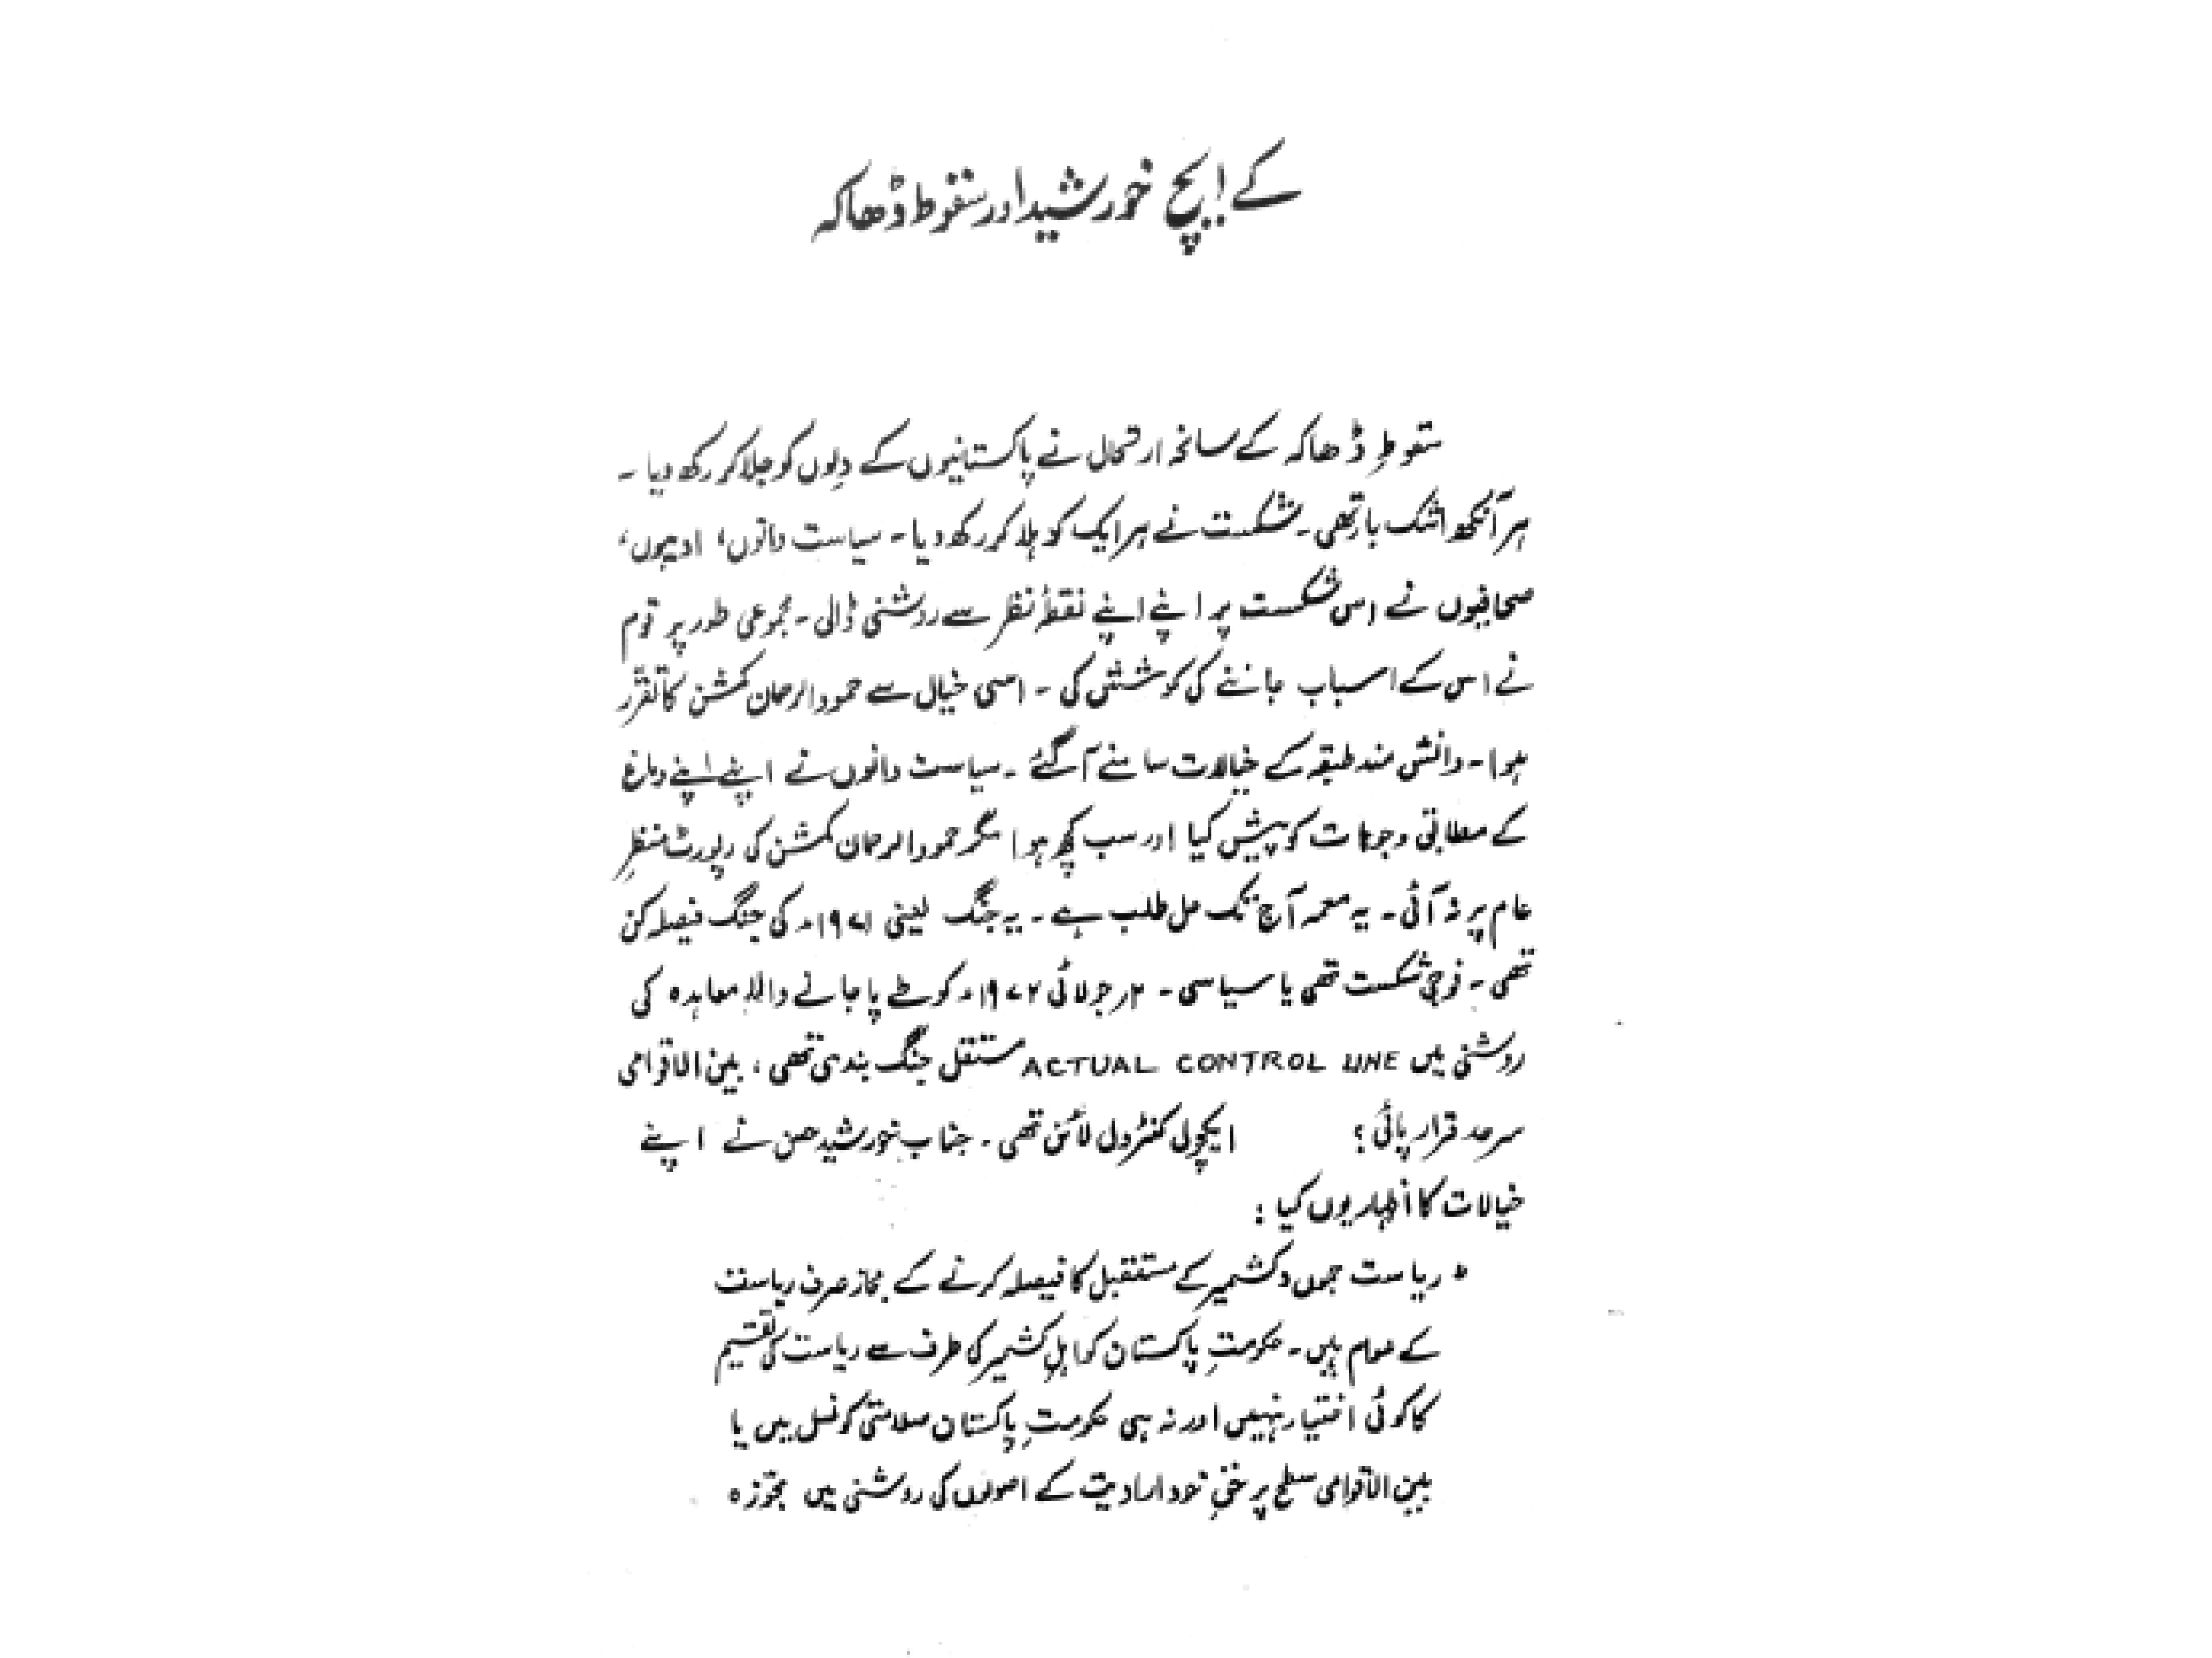 کے ایچ خورشید اور سقوط ڈھاکہ
سقوطِ ڈھاکہ کے سانحہ ارتحال نے پاکستانیوں کے دِلوں کو جلا کر رکھ دیا ۔
ہر آنکھ اشک بار تھی ۔ شکست نے ہر ایک کو ہلا کر رکھ دیا ۔ سیاست دانوں، ادیبوں،
صحافیوں نے اس شکست پر اپنے اپنے نقطۂ نظر سے روشنی ڈالی ۔ مجموعی طور پر قوم
نے اس کے اسباب جاننے کی کوشش کی ۔ اسی خیال سے حمود الرحمان کمشن کا تقرّر
ہوا ۔ دانش مند طبقہ کے خیالات سامنے آ گئے ۔ سیاست دانوں نے اپنے اپنے دماغ
کے مطابق وجوہات کو پیش کیا اور سب کچھ ہوا مگر حمود الرحمان کمشن کی رپورٹ منظرِ
عام پر نہ آئی ۔ یہ معمہ آج تک حل طلب ہے ۔ یہ جنگ یعنی ۱۹۷۱ء کی جنگ فیصلہ کن
تھی ۔ فوجی شکست تھی یا سیاسی ۔ ۲ر جولائی ۱۹۷۲ء کو طے پا جانے والا معاہدہ کی
روشنی میں ACTUAL CONTROL LINE مستقل جنگ بندی تھی، بین الاقوامی
سرحد قرار پائی؟ ایکچول کنٹرول لائن تھی ۔ جناب خورشید حسن نے اپنے
خیالات کا اظہار یوں کیا :
" ریاست جموں و کشمیر کے مستقبل کا فیصلہ کرنے کے مجاز صرف ریاست
کے عوام ہیں ۔ حکومتِ پاکستان کو اہلِ کشمیر کی طرف سے ریاست کی تقسیم
کا کوئی اختیار نہیں اور نہ ہی حکومتِ پاکستان سلامتی کونسل میں یا
بین الاقوامی سطح پر حقِ خود ارادیت کے اصولوں کی روشنی میں مجوّزہ